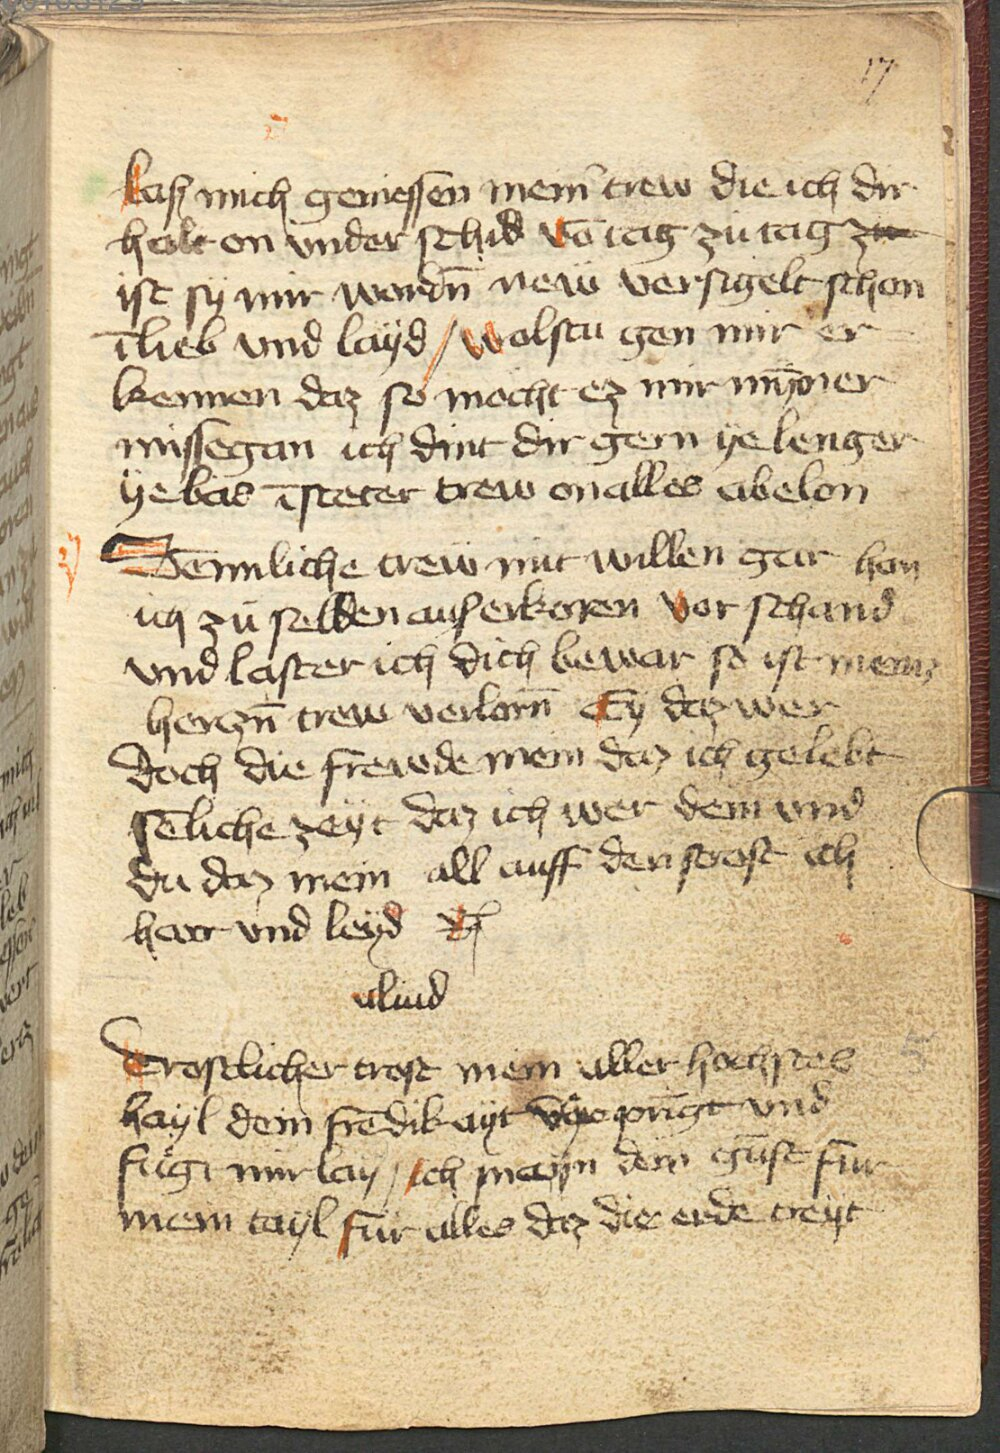 17
laß mich geniessen mein̄ trew die ich dir
halt on vnder schid vō tag zu tag
ist sy mir wordn̄ new versigelt schon
ī lieb vnd layd / wolstu gen mir er
kennen daz so mocht ez mir mȳner
missegan ich dint dir gern ye lenger
ye bas ī steter trew on alles abelon
liche trew mit willen gar han
ich zu selden auserkoren vor schand
vnd laster ich dich bewar so ist meins
herczn̄ trew verlorn̄ Ey daz wer
doch die frewde mein daz ich gelebt
sēliche zeyt daz ich wer dein vnd
du daz mein all auff den trost ich
harr vnd leyd
aliud
Trostlicher trost mein aller hochstes
hayl dein frēdikayt pringt vnd
fugt mir lay / ich mayn dein gūst fur
mein tayl fur alles daz die erde treyt